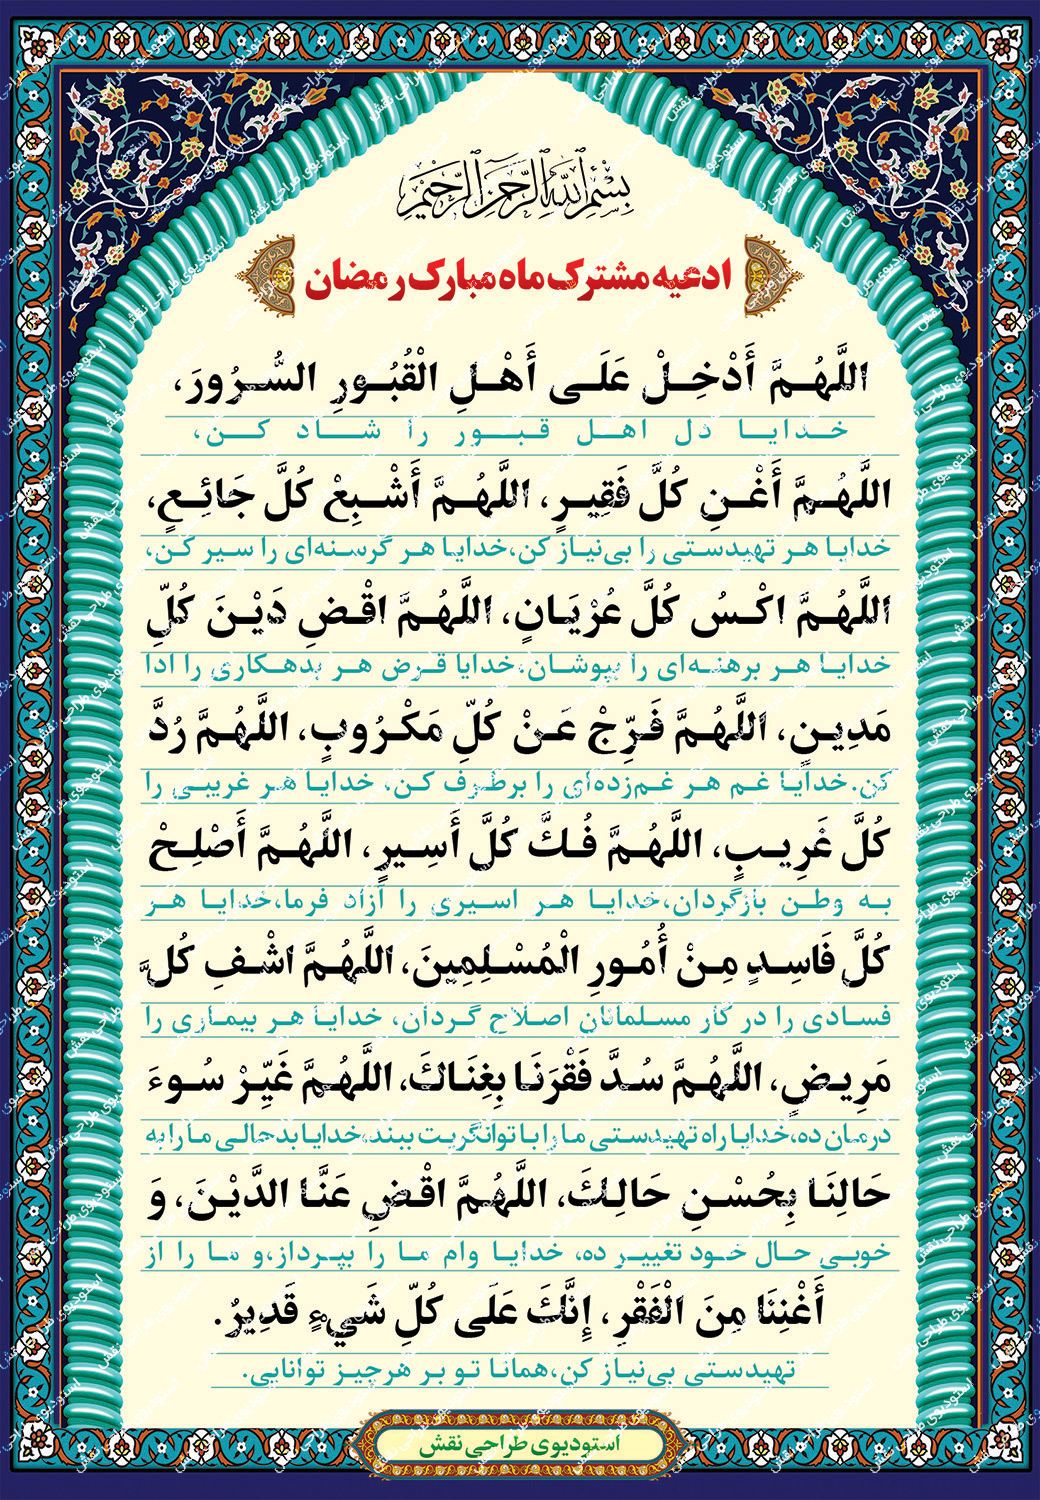 بِسْمِ ٱللَّهِ ٱلرَّحْمَٰنِ ٱلرَّحِيمِ
ادعیه مشترک ماه مبارک رمضان
اللَّهُمَّ أَدْخِلْ عَلَى أَهْلِ الْقُبُورِ السُّرُورَ،
خدایا دل اهل قبور را شاد کن،
اللَّهُمَّ أَغْنِ كُلَّ فَقِيرٍ، اللَّهُمَّ أَشْبِعْ كُلَّ جَائِعٍ،
خدایا هر تهیدستی را بی‌نیاز کن،خدایا هر گرسنه‌ای را سیر کن،
اللَّهُمَّ اكْسُ كُلَّ عُرْيَانٍ، اللَّهُمَّ اقْضِ دَيْنَ كُلِّ
خدایا هر برهنه‌ای را بپوشان،خدایا قرض هر بدهکاری را ادا
مَدِينٍ، اللَّهُمَّ فَرِّجْ عَنْ كُلِّ مَكْرُوبٍ، اللَّهُمَّ رُدَّ
کن.خدایا غم هر غم‌زده‌ای را برطرف کن، خدایا هر غریبی را
كُلَّ غَرِيبٍ، اللَّهُمَّ فُكَّ كُلَّ أَسِيرٍ، اللَّهُمَّ أَصْلِحْ
به وطن بازگردان،خدایا هر اسیری را آزاد فرما،خدایا هر
كُلَّ فَاسِدٍ مِنْ أُمُورِ الْمُسْلِمِينَ، اللَّهُمَّ اشْفِ كُلَّ
فسادی را در کار مسلمانان اصلاح گردان، خدایا هر بیماری را
مَرِيضٍ، اللَّهُمَّ سُدَّ فَقْرَنَا بِغِنَاكَ، اللَّهُمَّ غَيِّرْ سُوءَ
درمان ده،خدایا راه تهیدستی ما را با توانگریت ببند،خدایا بدحالی ما را به
حَالِنَا بِحُسْنِ حَالِكَ، اللَّهُمَّ اقْضِ عَنَّا الدَّيْنَ، وَ
خوبی حال خود تغییر ده، خدایا وام ما را بپرداز،و ما را از
أَغْنِنَا مِنَ الْفَقْرِ، إِنَّكَ عَلَى كُلِّ شَيْءٍ قَدِيرٌ.
تهیدستی بی‌نیاز کن،همانا تو بر هرچیز توانایی.
استودیوی طراحی نقش